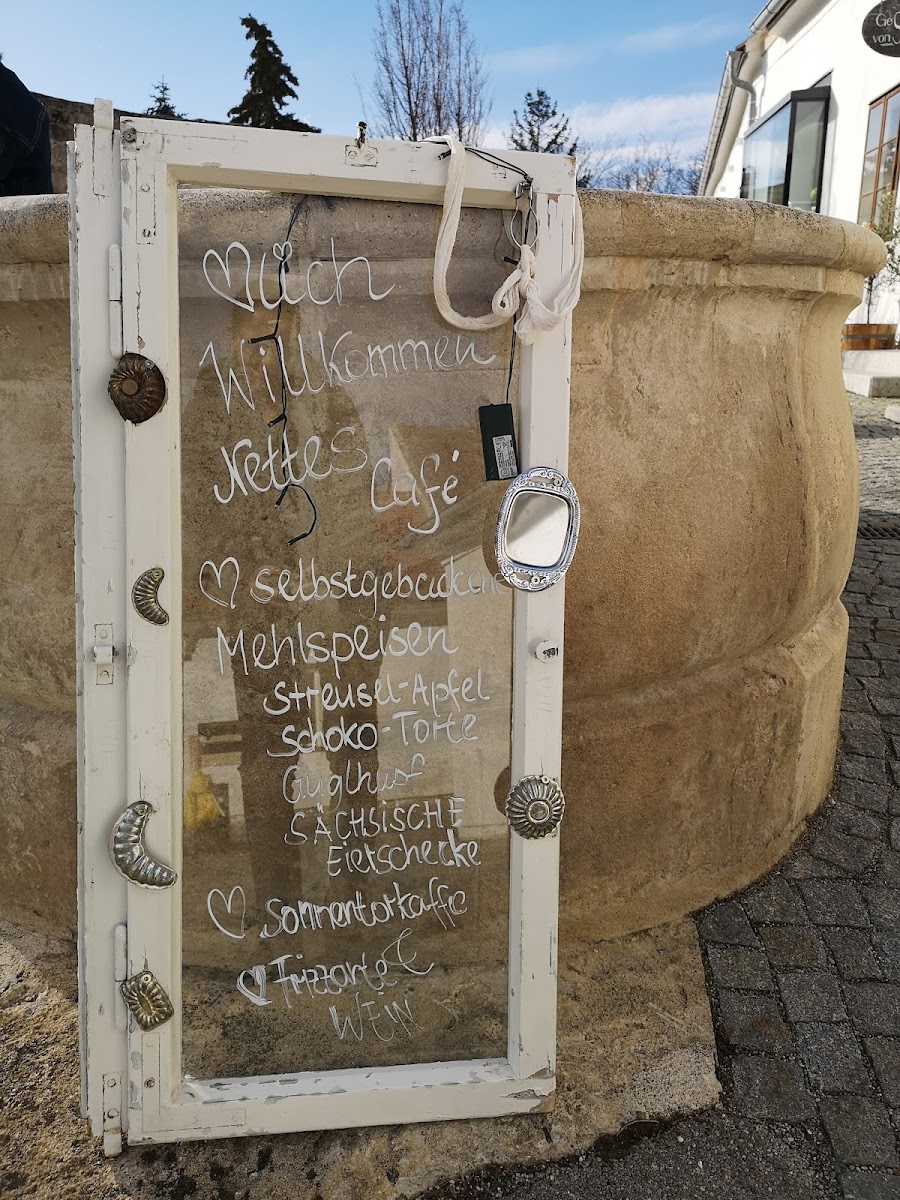 ♡lich
Willkommen
Nettes Café
♡ selbstgebackene
Mehlspeisen
Streusel-Apfel
Schoko-Torte
Guglhuf
SÄCHSISCHE
Eierschecke
♡ Sonnentorkaffe
♡ Frizzante &
WEIN